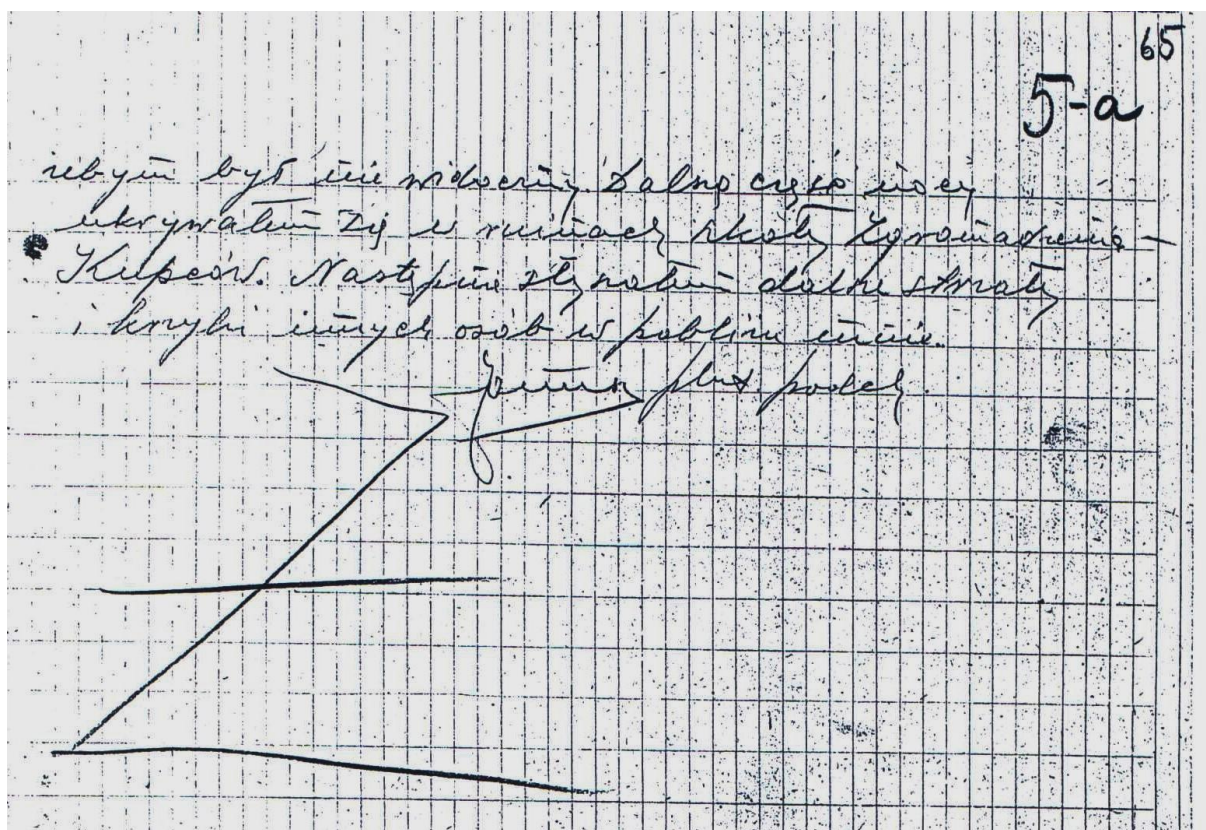 65
5-a
żebym był nie widoczny Dalszą część nocy
ukrywałem się w ruinach szkoły Zgromadzenia
Kupców. Następnie słyszałem dalsze strzały
i krzyki innych osób w pobliżu mnie.
plut podch